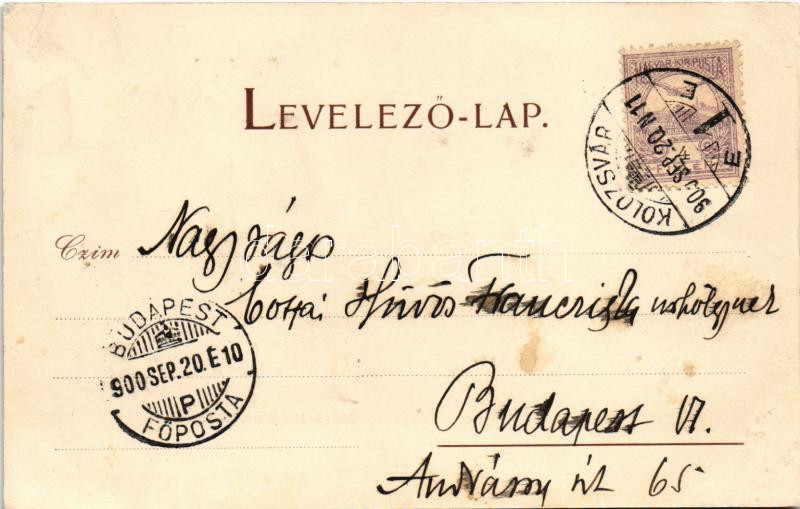 LEVELEZŐ-LAP.
MAGYAR KIR. POSTA
KOLOZSVÁR
900 SEP. 20 N 11
E 1 E
Czim Nagyságo
Hüvös
Budapest VI.
Andrássy út 65
BUDAPEST
900 SEP. 20. É 10
P
FŐPOSTA
darabanth